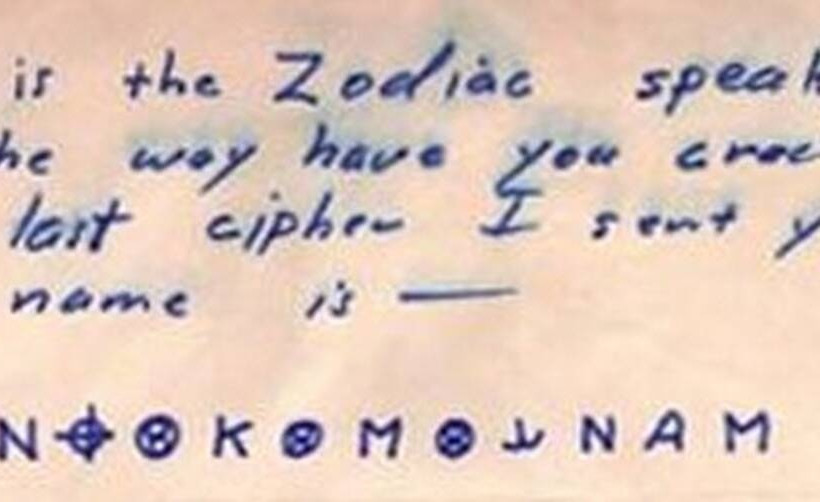 is the Zodiac speak
he way have you crac
last cipher I sent y
name is —
N ⌖ ⊗ K ⊗ M ⊗ ⅄ N A M